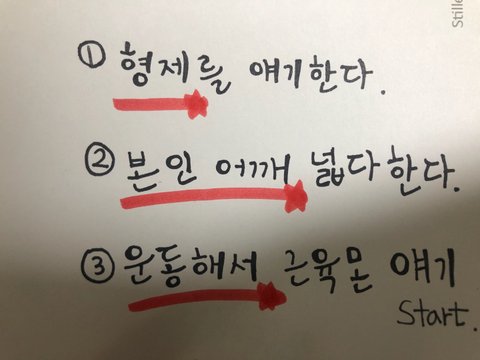 ① 형제를 얘기한다.
② 본인 어깨 넓다 한다.
③ 운동해서 근육몬 얘기
Start.